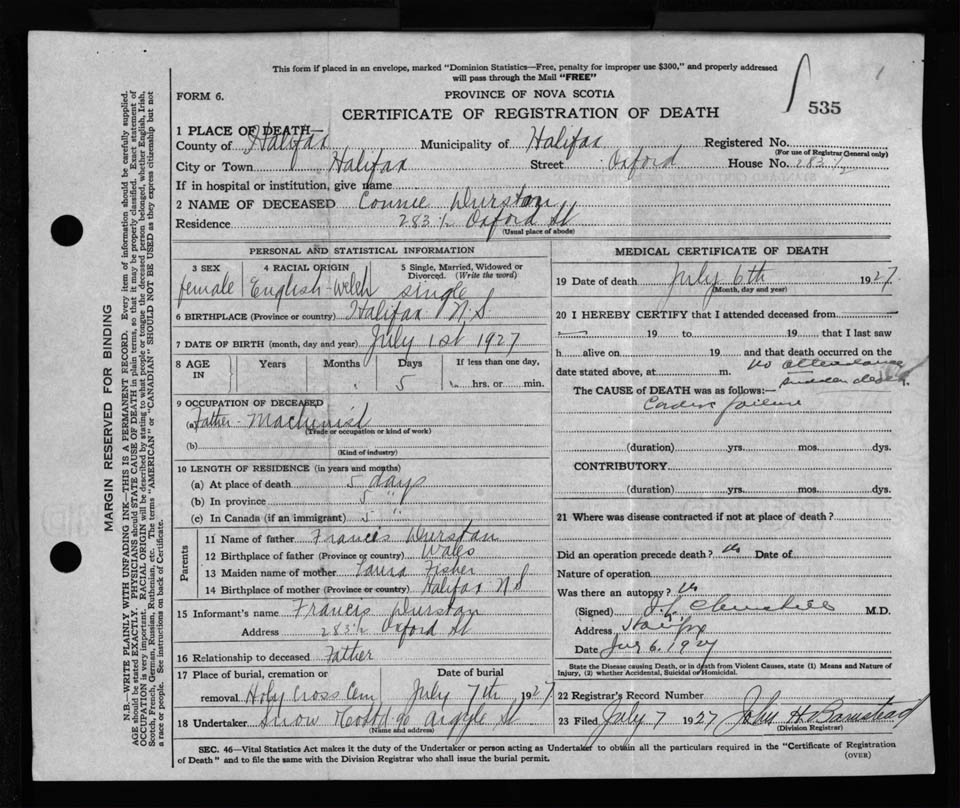 This form if placed in an envelope, marked "Dominion Statistics—Free, penalty for improper use $300," and properly addressed
will pass through the Mail "FREE"
FORM 6.
PROVINCE OF NOVA SCOTIA
535
CERTIFICATE OF REGISTRATION OF DEATH
1 PLACE OF DEATH—
County of Halifax Municipality of Halifax Registered No.
(For use of Registrar General only)
City or Town Halifax Street Oxford House No. 283 1/2
If in hospital or institution, give name
2 NAME OF DECEASED Connie Durstan
Residence 283 1/2 Oxford St
(Usual place of abode)
PERSONAL AND STATISTICAL INFORMATION
3 SEX 4 RACIAL ORIGIN 5 Single, Married, Widowed or
Divorced. (Write the word)
female English-Welch single
6 BIRTHPLACE (Province or country) Halifax N.S
7 DATE OF BIRTH (month, day and year) July 1st 1927
8 AGE Years Months Days If less than one day,
IN 5 hrs. or min.
9 OCCUPATION OF DECEASED
(a) Father Machinist
(Trade or occupation or kind of work)
(b)
(Kind of industry)
10 LENGTH OF RESIDENCE (in years and months)
(a) At place of death 5 days
(b) In province 5 "
(c) In Canada (if an immigrant) 5 "
Parents
11 Name of father Francis Durstan
12 Birthplace of father (Province or country) Wales
13 Maiden name of mother Laura Fisher
14 Birthplace of mother (Province or country) Halifax N S
15 Informant's name Francis Durstan
Address 283 1/2 Oxford St
16 Relationship to deceased Father
17 Place of burial, cremation or Date of burial
removal Holy Cross Cem July 7th 1927
18 Undertaker Snow 90 Argyle St
(Name and address)
MEDICAL CERTIFICATE OF DEATH
19 Date of death July 6th 1927
(Month, day and year)
20 I HEREBY CERTIFY that I attended deceased from
19 to 19 that I last saw
h alive on 19 and that death occurred on the
date stated above, at m. No attendance
sudden death.
The CAUSE of DEATH was as follows:—
Cardiac failure
(duration) yrs. mos. dys.
CONTRIBUTORY
(duration) yrs. mos. dys.
21 Where was disease contracted if not at place of death?
Did an operation precede death? No Date of
Nature of operation
Was there an autopsy? No
(Signed) Churchill M.D.
Address Halifax
Date 6, 1927
State the Disease causing Death, or in death from Violent Causes, state (1) Means and Nature of
Injury, (2) whether Accidental, Suicidal or Homicidal.
22 Registrar's Record Number
23 Filed July 7 1927 John H Barnstead
(Division Registrar)
SEC. 46—Vital Statistics Act makes it the duty of the Undertaker or person acting as Undertaker to obtain all the particulars required in the "Certificate of Registration
of Death" and to file the same with the Division Registrar who shall issue the burial permit.
(OVER)
MARGIN RESERVED FOR BINDING
N.B.—WRITE PLAINLY WITH UNFADING INK—THIS IS A PERMANENT RECORD. Every item of information should be carefully supplied.
AGE should be stated EXACTLY. PHYSICIANS should STATE CAUSE OF DEATH in plain terms, so that it may be properly classified. Exact statement of
OCCUPATION is very important. RACIAL ORIGIN will be described by stating to what people or tongue the deceased person belonged, whether English, Irish,
Scotch, French, German, Russian, Ruthenian, etc. The terms "AMERICAN" or "CANADIAN" SHOULD NOT BE USED as they express citizenship but not
a race or people. See instructions on back of Certificate.